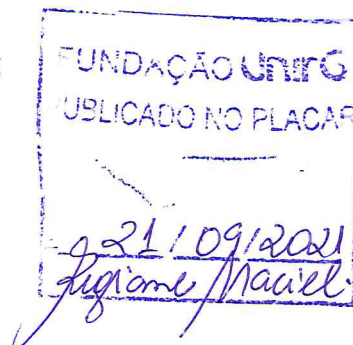 FUNDAÇÃO UnirG
PUBLICADO NO PLACAR
21/09/2021
Maciel